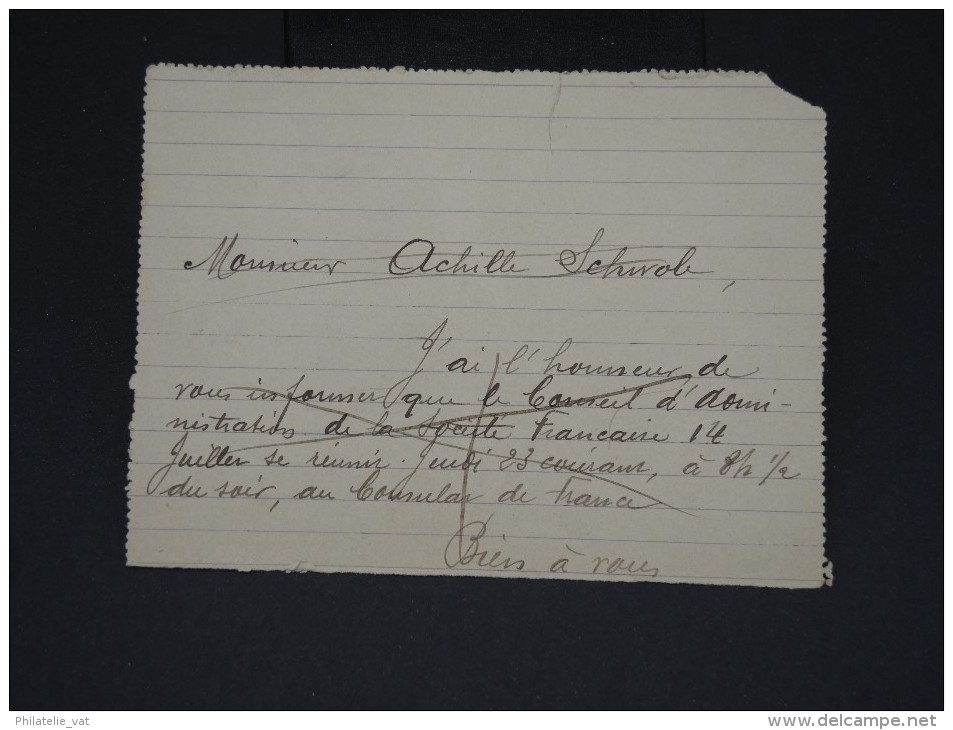 Monsieur Achille Schwob,
J'ai l'honneur de
vous informer que le Conseil d'Admi-
nistration de la Société Francaise 14
Juillet se réunir Jeudi 23 courant, à 8h 1/2
du soir, au Consulat de France
Bien à vous
Philatelie_vat
www.delcampe.net